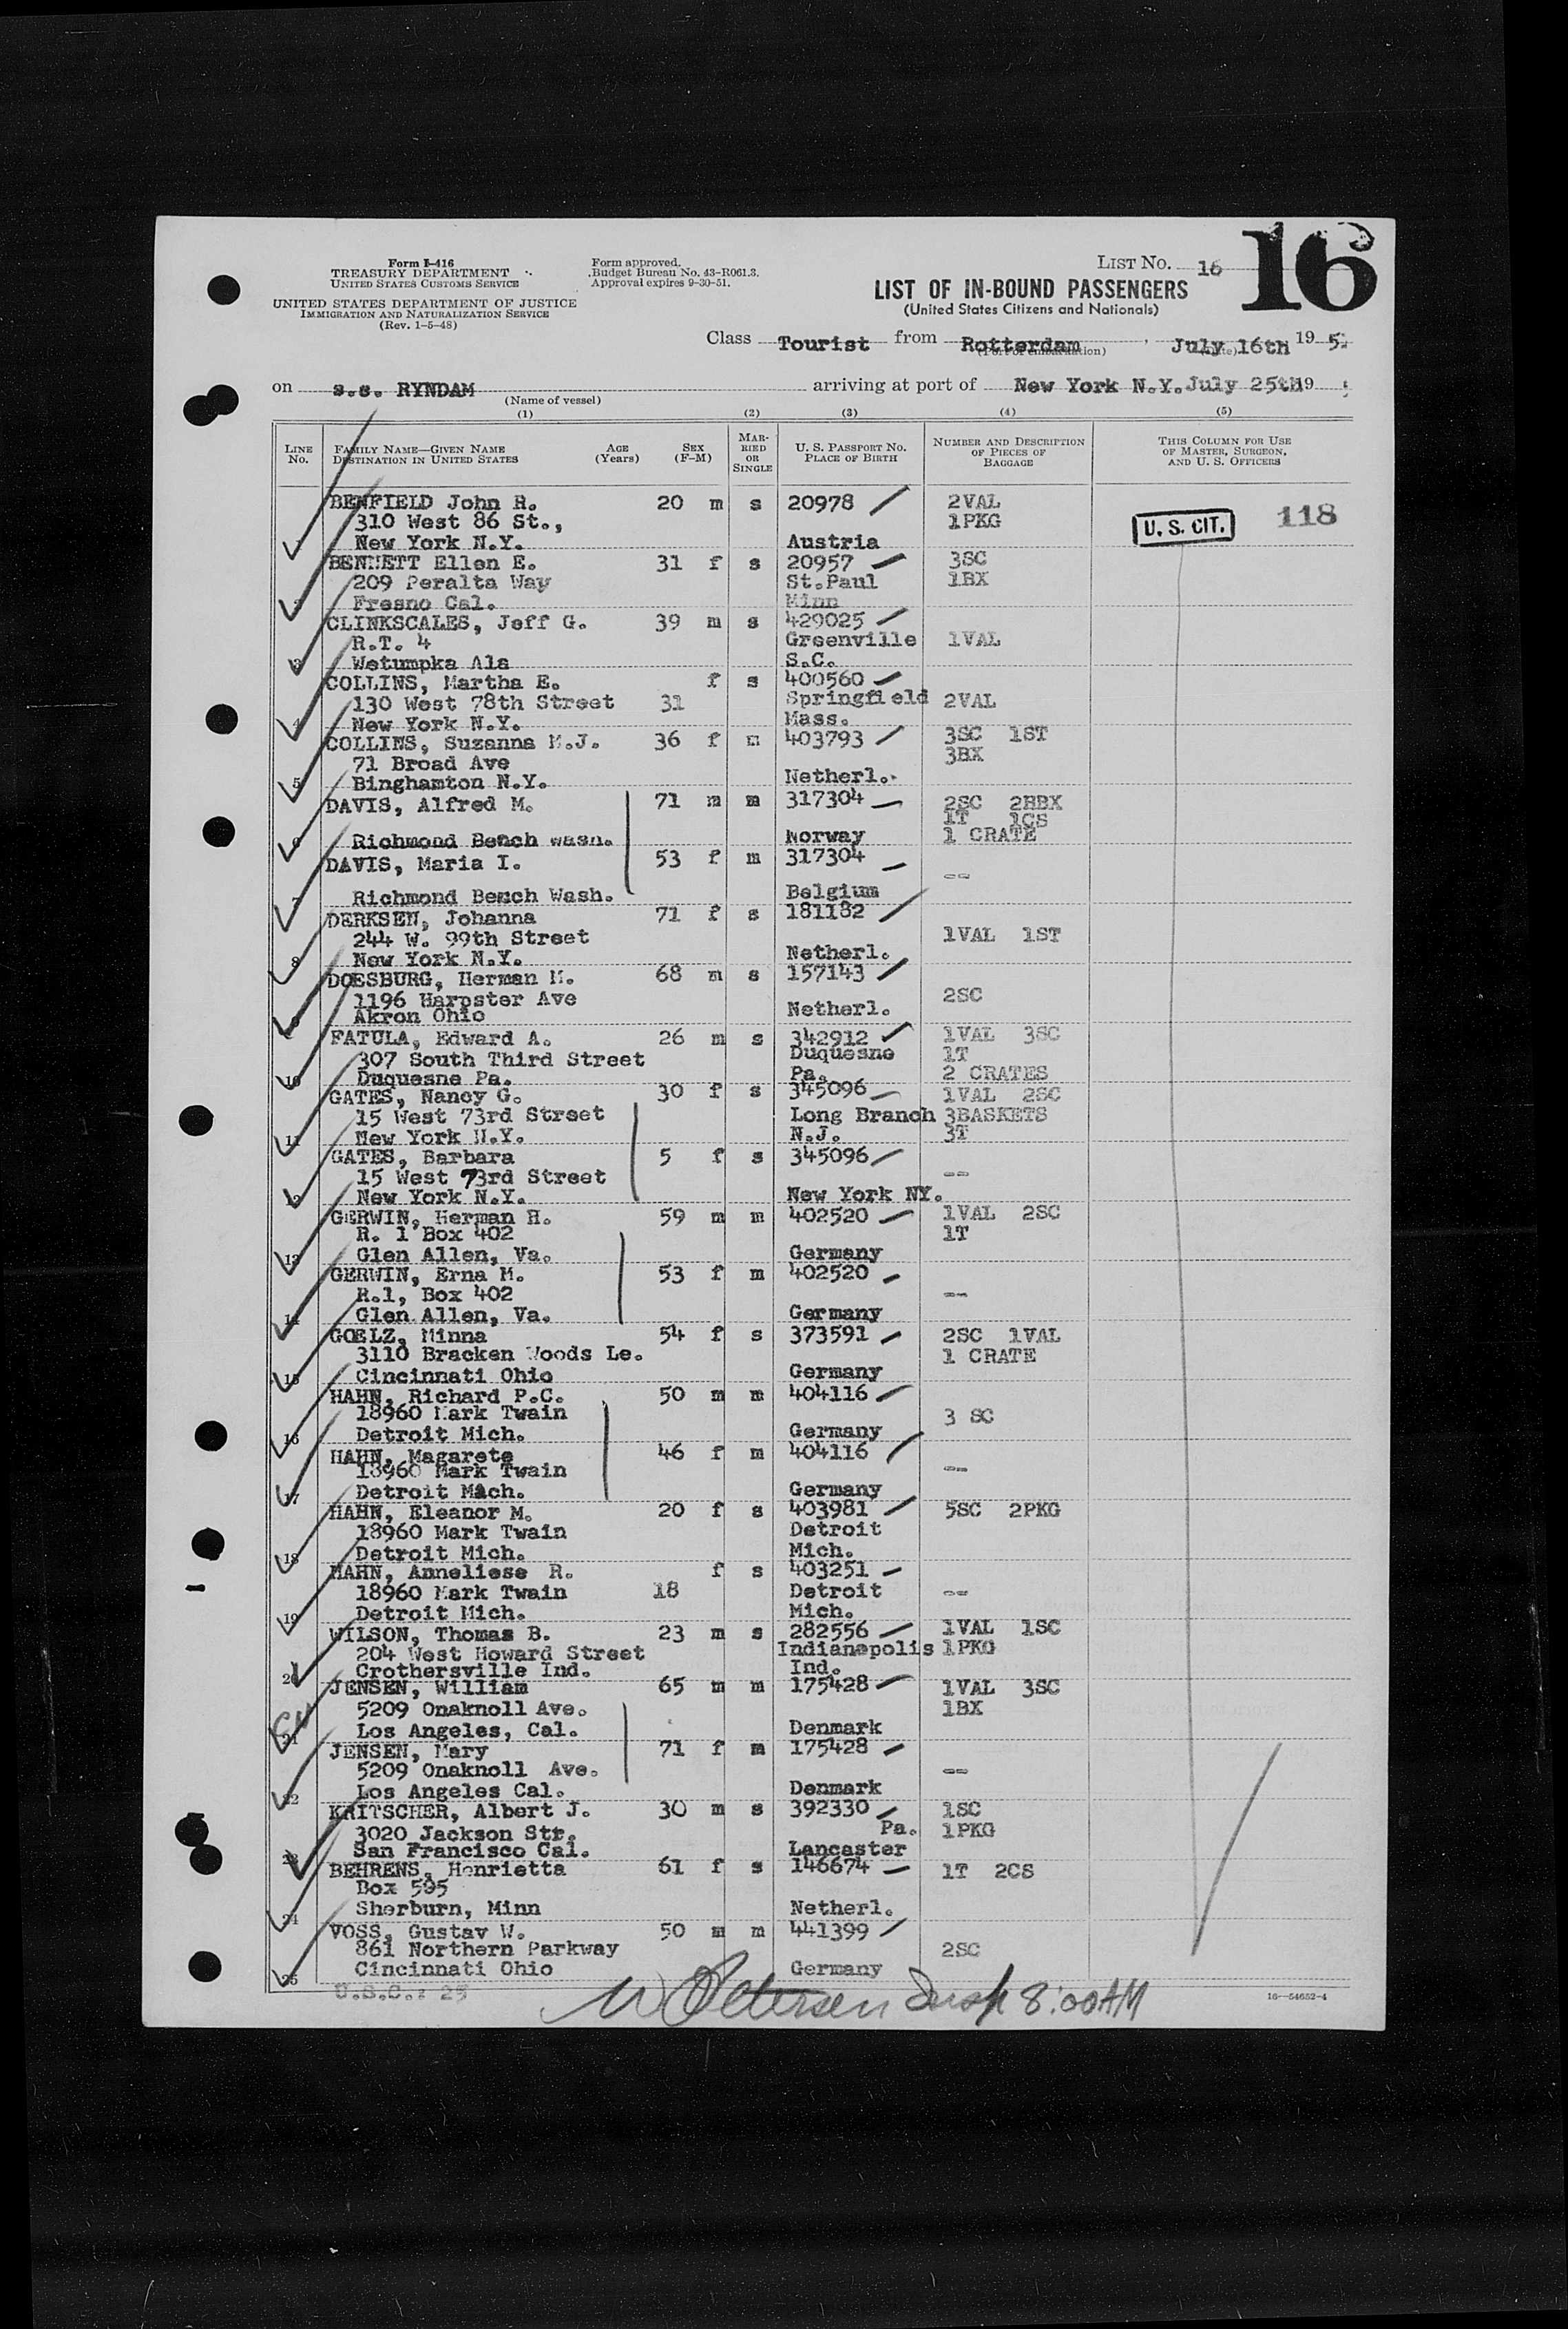 16
Form I-416
TREASURY DEPARTMENT
UNITED STATES CUSTOMS SERVICE
UNITED STATES DEPARTMENT OF JUSTICE
IMMIGRATION AND NATURALIZATION SERVICE
(Rev. 1-5-48)
Form approved.
Budget Bureau No. 43-R061.3.
Approval expires 9-30-51.
LIST NO. 16
LIST OF IN-BOUND PASSENGERS
(United States Citizens and Nationals)
Class Tourist from Rotterdam, July 16th 195
(Port of embarkation) (Date)
on s.s. RYNDAM arriving at port of New York N.Y. July 25th 19
(Name of vessel)
(1) (2) (3) (4) (5)
LINE NO. FAMILY NAME—GIVEN NAME DESTINATION IN UNITED STATES AGE (Years) SEX (F-M) MARRIED OR SINGLE U. S. PASSPORT NO. PLACE OF BIRTH NUMBER AND DESCRIPTION OF PIECES OF BAGGAGE THIS COLUMN FOR USE OF MASTER, SURGEON, AND U. S. OFFICERS
BENFIELD John R. 20 m s 20978 2VAL
310 West 86 St., 1PKG U. S. CIT. 118
New York N.Y. Austria
BENNETT Ellen E. 31 f s 20957 3SC
209 Peralta Way St.Paul 1BX
Fresno Cal. Minn
CLINKSCALES, Jeff G. 39 m s 429025
R.T. 4 Greenville 1VAL
3 Wetumpka Ala S.C.
COLLINS, Martha E. f s 400560
130 West 78th Street 31 Springfield 2VAL
4 New York N.Y. Mass.
COLLINS, Suzanna M.J. 36 f m 403793 3SC 1ST
71 Broad Ave 3BX
5 Binghamton N.Y. Netherl.
DAVIS, Alfred M. 71 m m 317304 2SC 2BBX
1T 1CS
6 Richmond Beach wash. Norway 1 CRATE
DAVIS, Maria I. 53 f m 317304
--
7 Richmond Beach Wash. Belgium
DERKSEN, Johanna 71 f s 181182
244 W. 99th Street 1VAL 1ST
8 New York N.Y. Netherl.
DOESBURG, Herman M. 68 m s 157143
1196 Harpster Ave 2SC
9 Akron Ohio Netherl.
FATULA, Edward A. 26 m s 342912 1VAL 3SC
307 South Third Street Duquesne 1T
10 Duquesne Pa. Pa. 2 CRATES
GATES, Nancy G. 30 f s 345096 1VAL 2SC
15 West 73rd Street Long Branch 3BASKETS
11 New York N.Y. N.J. 3T
GATES, Barbara 5 f s 345096
15 West 73rd Street --
12 New York N.Y. New York NY.
GERWIN, Herman H. 59 m m 402520 1VAL 2SC
R. 1 Box 402 1T
13 Glen Allen, Va. Germany
GERWIN, Erna M. 53 f m 402520
R.1, Box 402 --
14 Glen Allen, Va. Germany
GOELZ, Minna 54 f s 373591 2SC 1VAL
3110 Bracken Woods Le. 1 CRATE
15 Cincinnati Ohio Germany
HAHN, Richard P.C. 50 m m 404116
18960 Mark Twain 3 SC
16 Detroit Mich. Germany
HAHN, Magarete 46 f m 404116
18960 Mark Twain --
17 Detroit Mich. Germany
HAHN, Eleanor M. 20 f s 403981 5SC 2PKG
18960 Mark Twain Detroit
18 Detroit Mich. Mich.
HAHN, Anneliese R. f s 403251
18960 Mark Twain 18 Detroit --
19 Detroit Mich. Mich.
WILSON, Thomas B. 23 m s 282556 1VAL 1SC
204 West Howard Street Indianapolis 1PKG
20 Crothersville Ind. Ind.
JENSEN, William 65 m m 175428 1VAL 3SC
5209 Onaknoll Ave. 1BX
21 Los Angeles, Cal. Denmark
JENSEN, Mary 71 f m 175428
5209 Onaknoll Ave. --
22 Los Angeles Cal. Denmark
KRITSCHER, Albert J. 30 m s 392330 1SC
3020 Jackson Str. Pa. 1PKG
23 San Francisco Cal. Lancaster
BEHRENS, Henrietta 61 f s 146674 1T 2CS
Box 595
24 Sherburn, Minn Netherl.
VOSS, Gustav W. 50 m m 441399
861 Northern Parkway 2SC
25 Cincinnati Ohio Germany
U.S.C.: 25
W Petersen Insp 8:00AM
16—54652-4